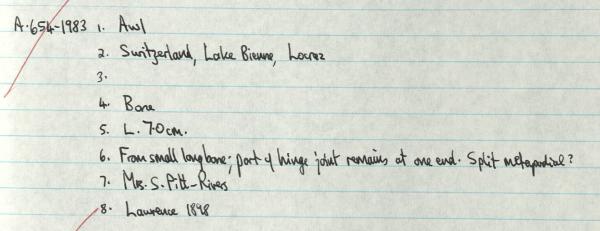 A.654-1983 1. Awl
2. Switzerland, Lake Bienne, Locraz
3.
4. Bone
5. L. 7.0cm.
6. From small longbone; part of hinge joint remains at one end. Split metapodial?
7. Mrs. S. Pitt-Rivers
8. Lawrence 1898